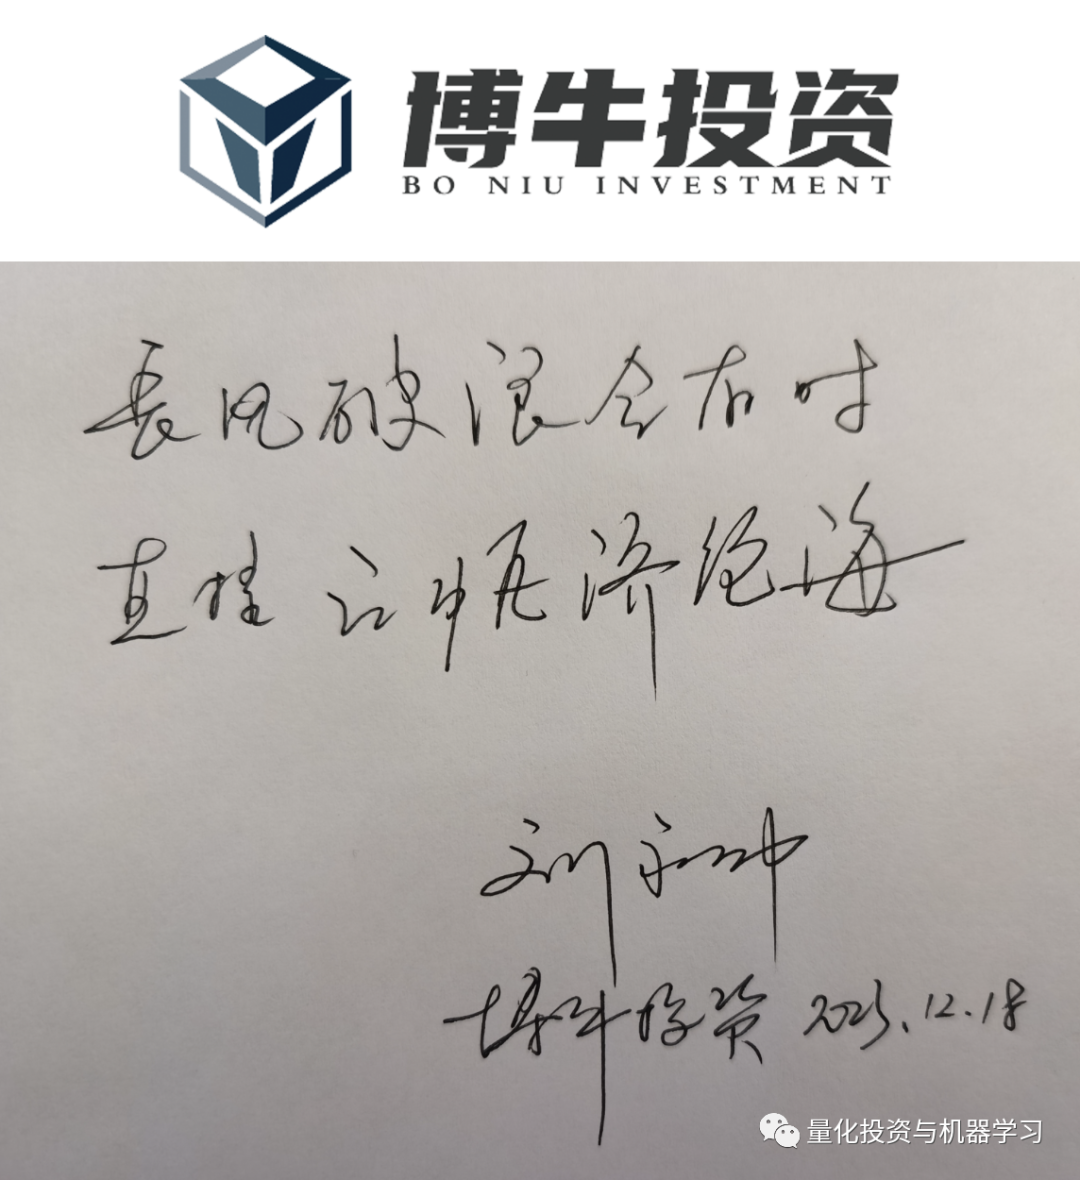 博牛投资
BO NIU INVESTMENT
長风破浪会有时
直挂云帆济沧海
刘
博牛投资 2023.12.18
量化投资与机器学习